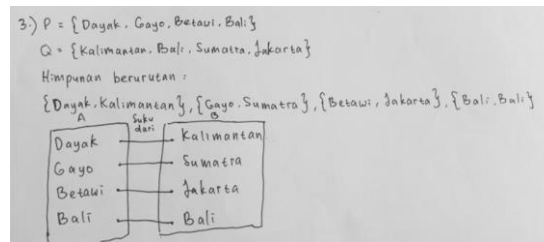 3.) P = {Dayak, Gayo, Betawi, Bali}
Q = {Kalimantan, Bali, Sumatra, Jakarta}
Himpunan berurutan :
{Dayak, Kalimantan}, {Gayo, Sumatra}, {Betawi, Jakarta}, {Bali, Bali}
A Suku dari B
Dayak Kalimantan
Gayo Sumatra
Betawi Jakarta
Bali Bali